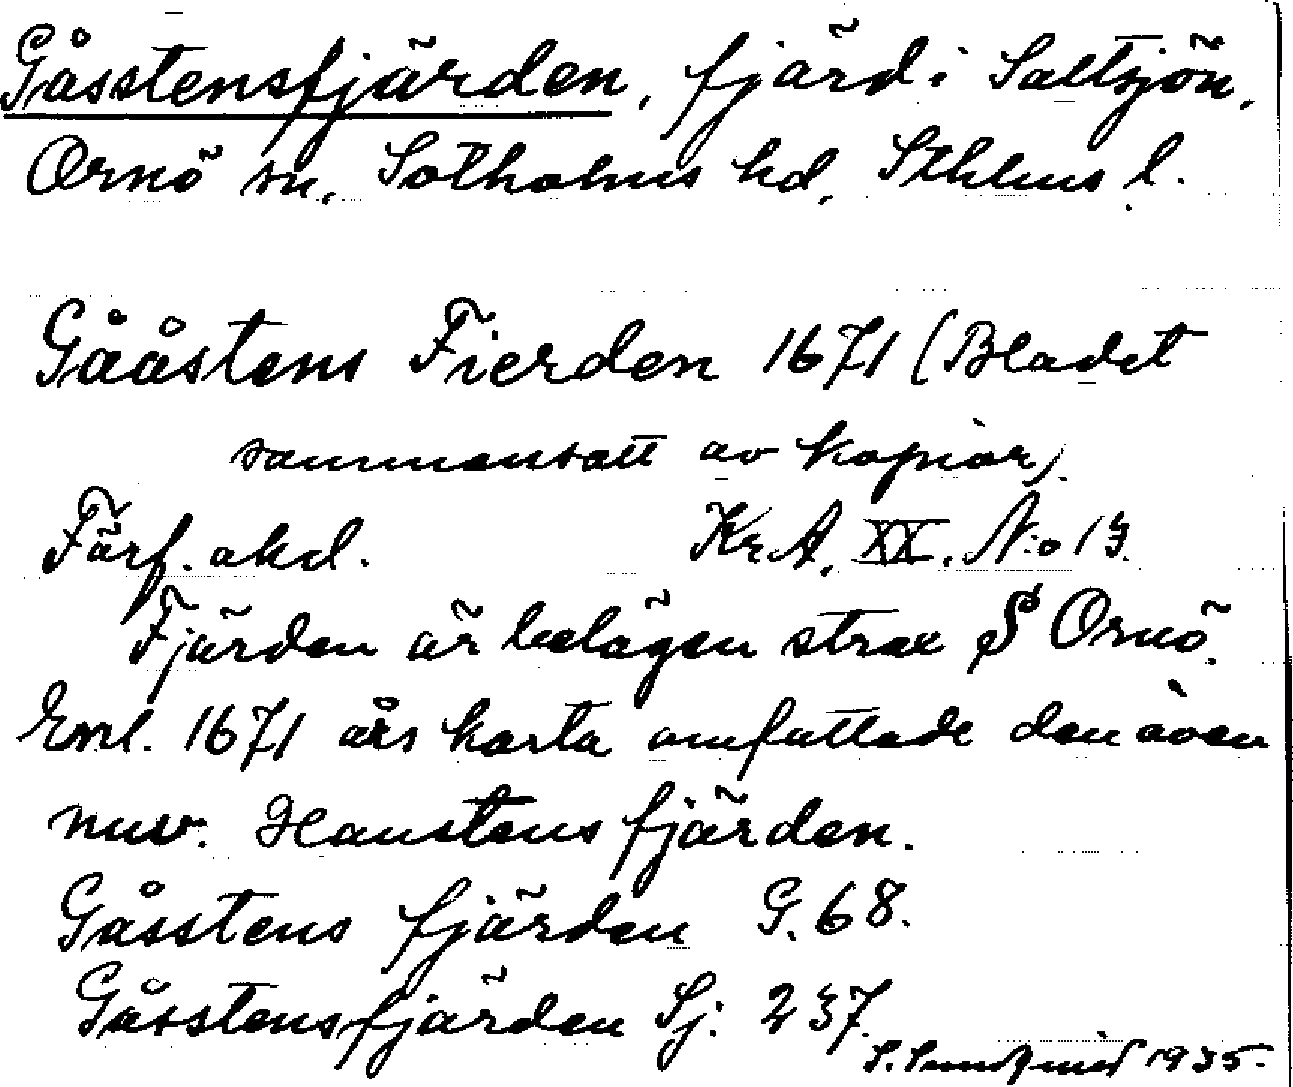 Gåsstensfjärden, fjärd i Saltsjön,
Ornö sn, Sotholms hd, Sthlms l.
Gååstens Fierden 1671 (Bladet
sammansatt av kopior).
Färf. akd. Kr.A. XX. N:o 13.
Fjärden är belägen strax S Ornö.
Enl. 1671 års karta omfattade den även
nuv. Hanstens fjärden.
Gåsstens fjärden G. 68.
Gåsstensfjärden Sj: 237.
S. Sundqvist 1935.